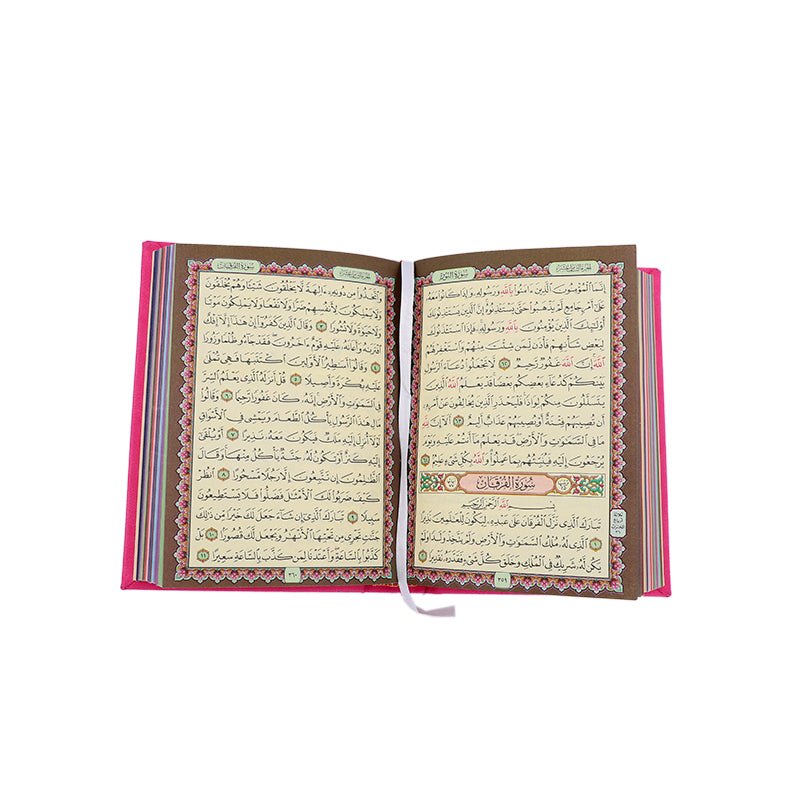 سُورَةُ النُّورِ
الجُزْءُ الثَّامِنَ عَشَرَ
إِنَّمَا ٱلْمُؤْمِنُونَ ٱلَّذِينَ ءَامَنُوا۟ بِٱللَّهِ وَرَسُولِهِۦ وَإِذَا كَانُوا۟ مَعَهُۥ
عَلَىٰٓ أَمْرٍ جَامِعٍ لَّمْ يَذْهَبُوا۟ حَتَّىٰ يَسْتَـْٔذِنُوهُ إِنَّ ٱلَّذِينَ يَسْتَـْٔذِنُونَكَ
أُو۟لَٰٓئِكَ ٱلَّذِينَ يُؤْمِنُونَ بِٱللَّهِ وَرَسُولِهِۦ فَإِذَا ٱسْتَـْٔذَنُوكَ
لِبَعْضِ شَأْنِهِمْ فَأْذَن لِّمَن شِئْتَ مِنْهُمْ وَٱسْتَغْفِرْ لَهُمُ
ٱللَّهَ إِنَّ ٱللَّهَ غَفُورٌ رَّحِيمٌ ٦٢ لَّا تَجْعَلُوا۟ دُعَآءَ ٱلرَّسُولِ
بَيْنَكُمْ كَدُعَآءِ بَعْضِكُم بَعْضًا قَدْ يَعْلَمُ ٱللَّهُ ٱلَّذِينَ
يَتَسَلَّلُونَ مِنكُمْ لِوَاذًا فَلْيَحْذَرِ ٱلَّذِينَ يُخَالِفُونَ عَنْ أَمْرِهِۦٓ
أَن تُصِيبَهُمْ فِتْنَةٌ أَوْ يُصِيبَهُمْ عَذَابٌ أَلِيمٌ ٦٣ أَلَآ إِنَّ لِلَّهِ
مَا فِى ٱلسَّمَٰوَٰتِ وَٱلْأَرْضِ قَدْ يَعْلَمُ مَآ أَنتُمْ عَلَيْهِ وَيَوْمَ
يُرْجَعُونَ إِلَيْهِ فَيُنَبِّئُهُم بِمَا عَمِلُوا۟ وَٱللَّهُ بِكُلِّ شَىْءٍ عَلِيمٌۢ ٦٤
سُورَةُ الفُرْقَانِ
بِسْمِ ٱللَّهِ ٱلرَّحْمَٰنِ ٱلرَّحِيمِ
تَبَارَكَ ٱلَّذِى نَزَّلَ ٱلْفُرْقَانَ عَلَىٰ عَبْدِهِۦ لِيَكُونَ لِلْعَٰلَمِينَ نَذِيرًا
١ ٱلَّذِى لَهُۥ مُلْكُ ٱلسَّمَٰوَٰتِ وَٱلْأَرْضِ وَلَمْ يَتَّخِذْ وَلَدًا وَلَمْ
يَكُن لَّهُۥ شَرِيكٌ فِى ٱلْمُلْكِ وَخَلَقَ كُلَّ شَىْءٍ فَقَدَّرَهُۥ تَقْدِيرًا ٢
ثلاثة
أرباع
الحزب
٣٦
٣٥٩
سُورَةُ الفُرْقَانِ
الجُزْءُ الثَّامِنَ عَشَرَ
وَٱتَّخَذُوا۟ مِن دُونِهِۦٓ ءَالِهَةً لَّا يَخْلُقُونَ شَيْـًٔا وَهُمْ يُخْلَقُونَ
وَلَا يَمْلِكُونَ لِأَنفُسِهِمْ ضَرًّا وَلَا نَفْعًا وَلَا يَمْلِكُونَ مَوْتًا
وَلَا حَيَوٰةً وَلَا نُشُورًا ٣ وَقَالَ ٱلَّذِينَ كَفَرُوٓا۟ إِنْ هَٰذَآ إِلَّآ إِفْكٌ
ٱفْتَرَىٰهُ وَأَعَانَهُۥ عَلَيْهِ قَوْمٌ ءَاخَرُونَ فَقَدْ جَآءُو ظُلْمًا وَزُورًا
٤ وَقَالُوٓا۟ أَسَٰطِيرُ ٱلْأَوَّلِينَ ٱكْتَتَبَهَا فَهِىَ تُمْلَىٰ
عَلَيْهِ بُكْرَةً وَأَصِيلًا ٥ قُلْ أَنزَلَهُ ٱلَّذِى يَعْلَمُ ٱلسِّرَّ
فِى ٱلسَّمَٰوَٰتِ وَٱلْأَرْضِ إِنَّهُۥ كَانَ غَفُورًا رَّحِيمًا ٦ وَقَالُوا۟
مَالِ هَٰذَا ٱلرَّسُولِ يَأْكُلُ ٱلطَّعَامَ وَيَمْشِى فِى ٱلْأَسْوَاقِ
لَوْلَآ أُنزِلَ إِلَيْهِ مَلَكٌ فَيَكُونَ مَعَهُۥ نَذِيرًا ٧ أَوْ يُلْقَىٰٓ
إِلَيْهِ كَنزٌ أَوْ تَكُونُ لَهُۥ جَنَّةٌ يَأْكُلُ مِنْهَا وَقَالَ
ٱلظَّٰلِمُونَ إِن تَتَّبِعُونَ إِلَّا رَجُلًا مَّسْحُورًا ٨ ٱنظُرْ
كَيْفَ ضَرَبُوا۟ لَكَ ٱلْأَمْثَٰلَ فَضَلُّوا۟ فَلَا يَسْتَطِيعُونَ
سَبِيلًا ٩ تَبَارَكَ ٱلَّذِىٓ إِن شَآءَ جَعَلَ لَكَ خَيْرًا مِّن ذَٰلِكَ
جَنَّٰتٍ تَجْرِى مِن تَحْتِهَا ٱلْأَنْهَٰرُ وَيَجْعَل لَّكَ قُصُورًۢا ١٠ بَلْ
كَذَّبُوا۟ بِٱلسَّاعَةِ وَأَعْتَدْنَا لِمَن كَذَّبَ بِٱلسَّاعَةِ سَعِيرًا ١١
٣٦٠